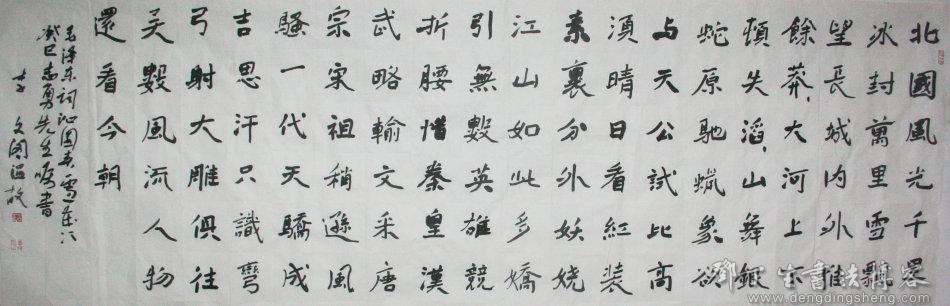 北國風光千里
冰封萬里雪飄
望長城內外惟
餘莽、大河上下
頓失滔、山舞銀
蛇原馳蠟象欲
与天公試比高
須晴日看紅裝
素裹分外妖嬈
江山如此多嬌
引無數英雄競
折腰惜秦皇漢
武略輸文采唐
宗宋祖稍遜風
騷一代天驕成
吉思汗只識彎
弓射大雕俱往
矣數風流人物
還看今朝
毛澤东詞沁園春雪
癸巳志勇先生囑書
www.dengdingsheng.com